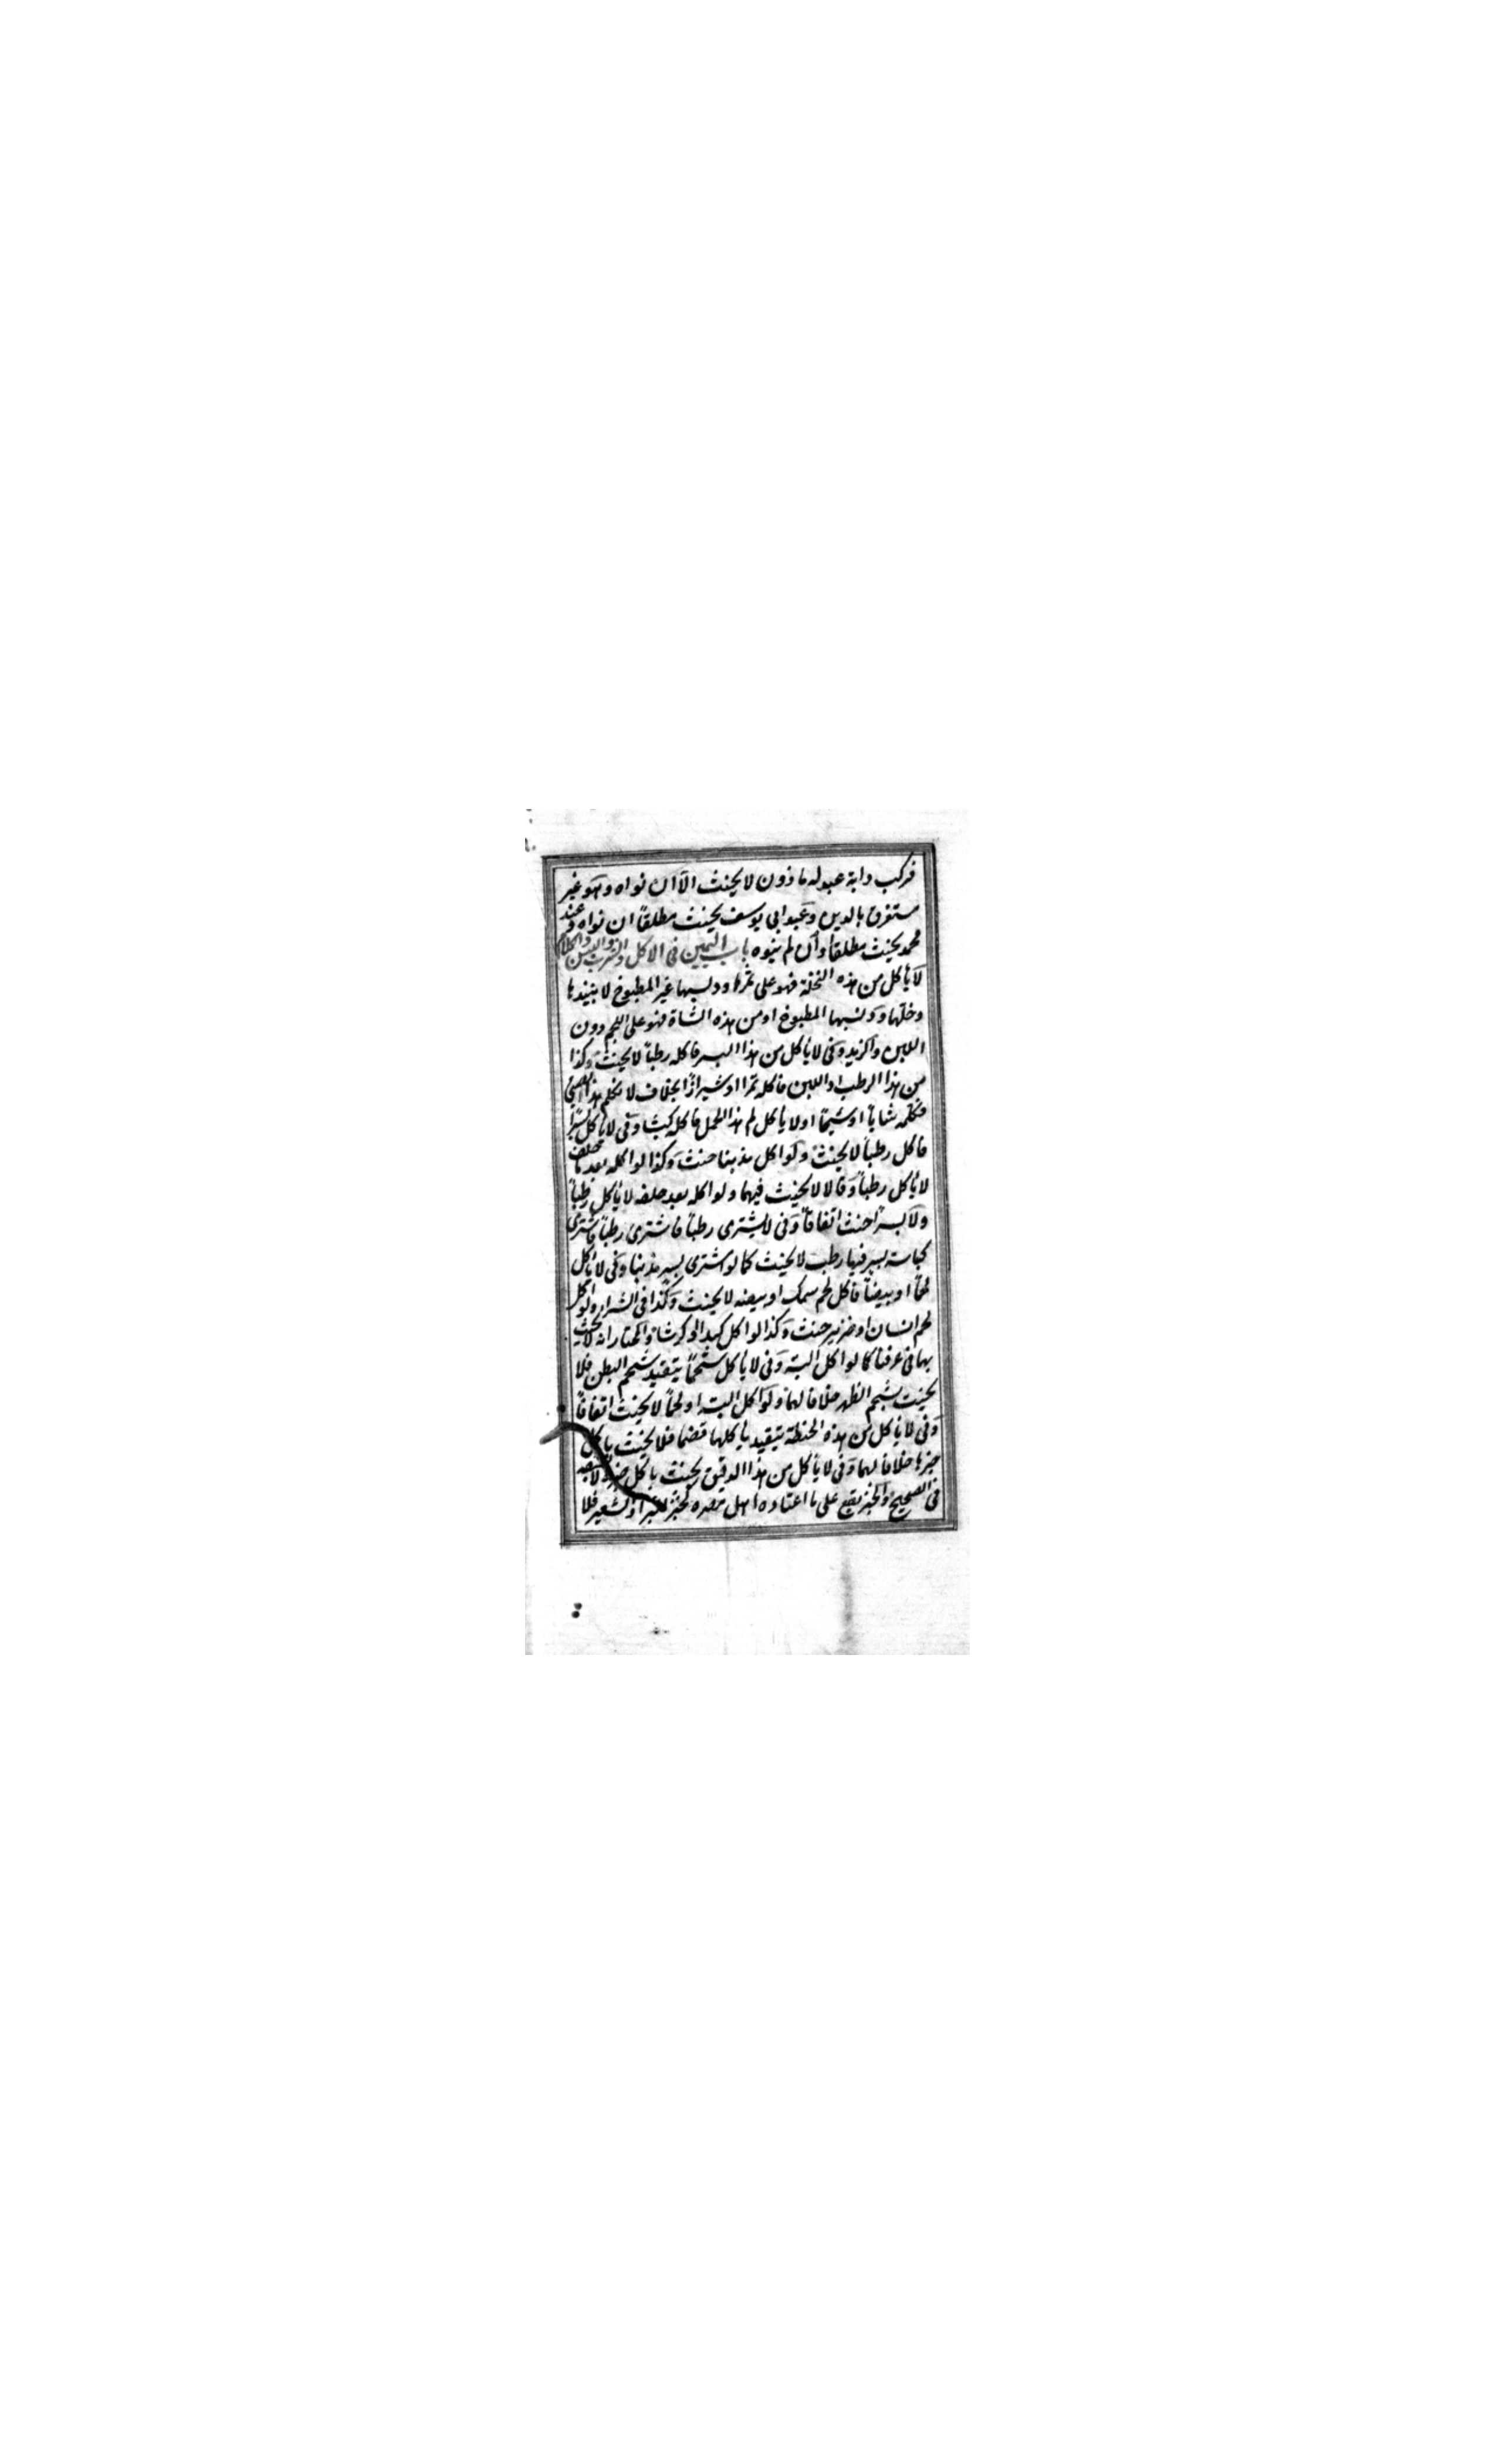 فركب دابة عبد له ماذون لا يحنث الا ان نواه وهو غير
مستغرق بالدين وعند ابي يوسف يحنث مطلقاً ان نواه وعند
محمد يحنث مطلقاً وان لم ينوه باب اليمين في الاكل والشرب واللبس والكلام
لا يأكل من هذه النخلة فهو على ثمرها ودبسها غير المطبوخ لا نبيذها
وخلّها ودبسها المطبوخ او من هذه الشاة فهو على اللحم دون
اللبن والزبد وفي لا يأكل من هذا البسر فاكله رطباً لا يحنث وكذا
من هذا الرطب او اللبن فاكله تمرا او شيرازاً بخلاف لا يكلم هذا الصبي
فكلمه شاباً او شيخاً او لا يأكل لحم هذا الحمل فاكله كبشا وفي لا يأكل بسراً
فاكل رطباً لا يحنث ولو اكل مذنبا حنث وكذا لو اكله بعد ما حلف
لا يأكل رطباً وقالا لا يحنث فيهما ولو اكله بعد حلفه لا يأكل رطباً
ولا بسراً حنث اتفاقاً وفي لا يشترى رطباً فاشترى رطباً فاشترى
كباسة بسر فيها رطب لا يحنث كما لو اشترى بسر مذنبا وفي لا يأكل
لحماً او بيضاً فاكل لحم سمك او بيضه لا يحنث وكذا في الشراء ولو اكل
لحم انسان او خنزير حنث وكذا لو اكل كبدا او كرشا والمختار انه لا يحنث
بها في عرفنا كما لو اكل الية وفي لا يأكل شحماً يتقيد بشحم البطن فلا
يحنث بشحم الظهر خلافا لهما ولو اكل الية او لحماً لا يحنث اتفاقاً
وفي لا يأكل من هذه الحنطة يتقيد باكلها قضما فلا يحنث باكل
خبزها خلافا لهما وفي لا يأكل من هذا الدقيق يحنث باكل خبزه لا بسفه
في الصحيح والخبز يقع على ما اعتاده اهل مصره كخبز البر او الشعير فلا